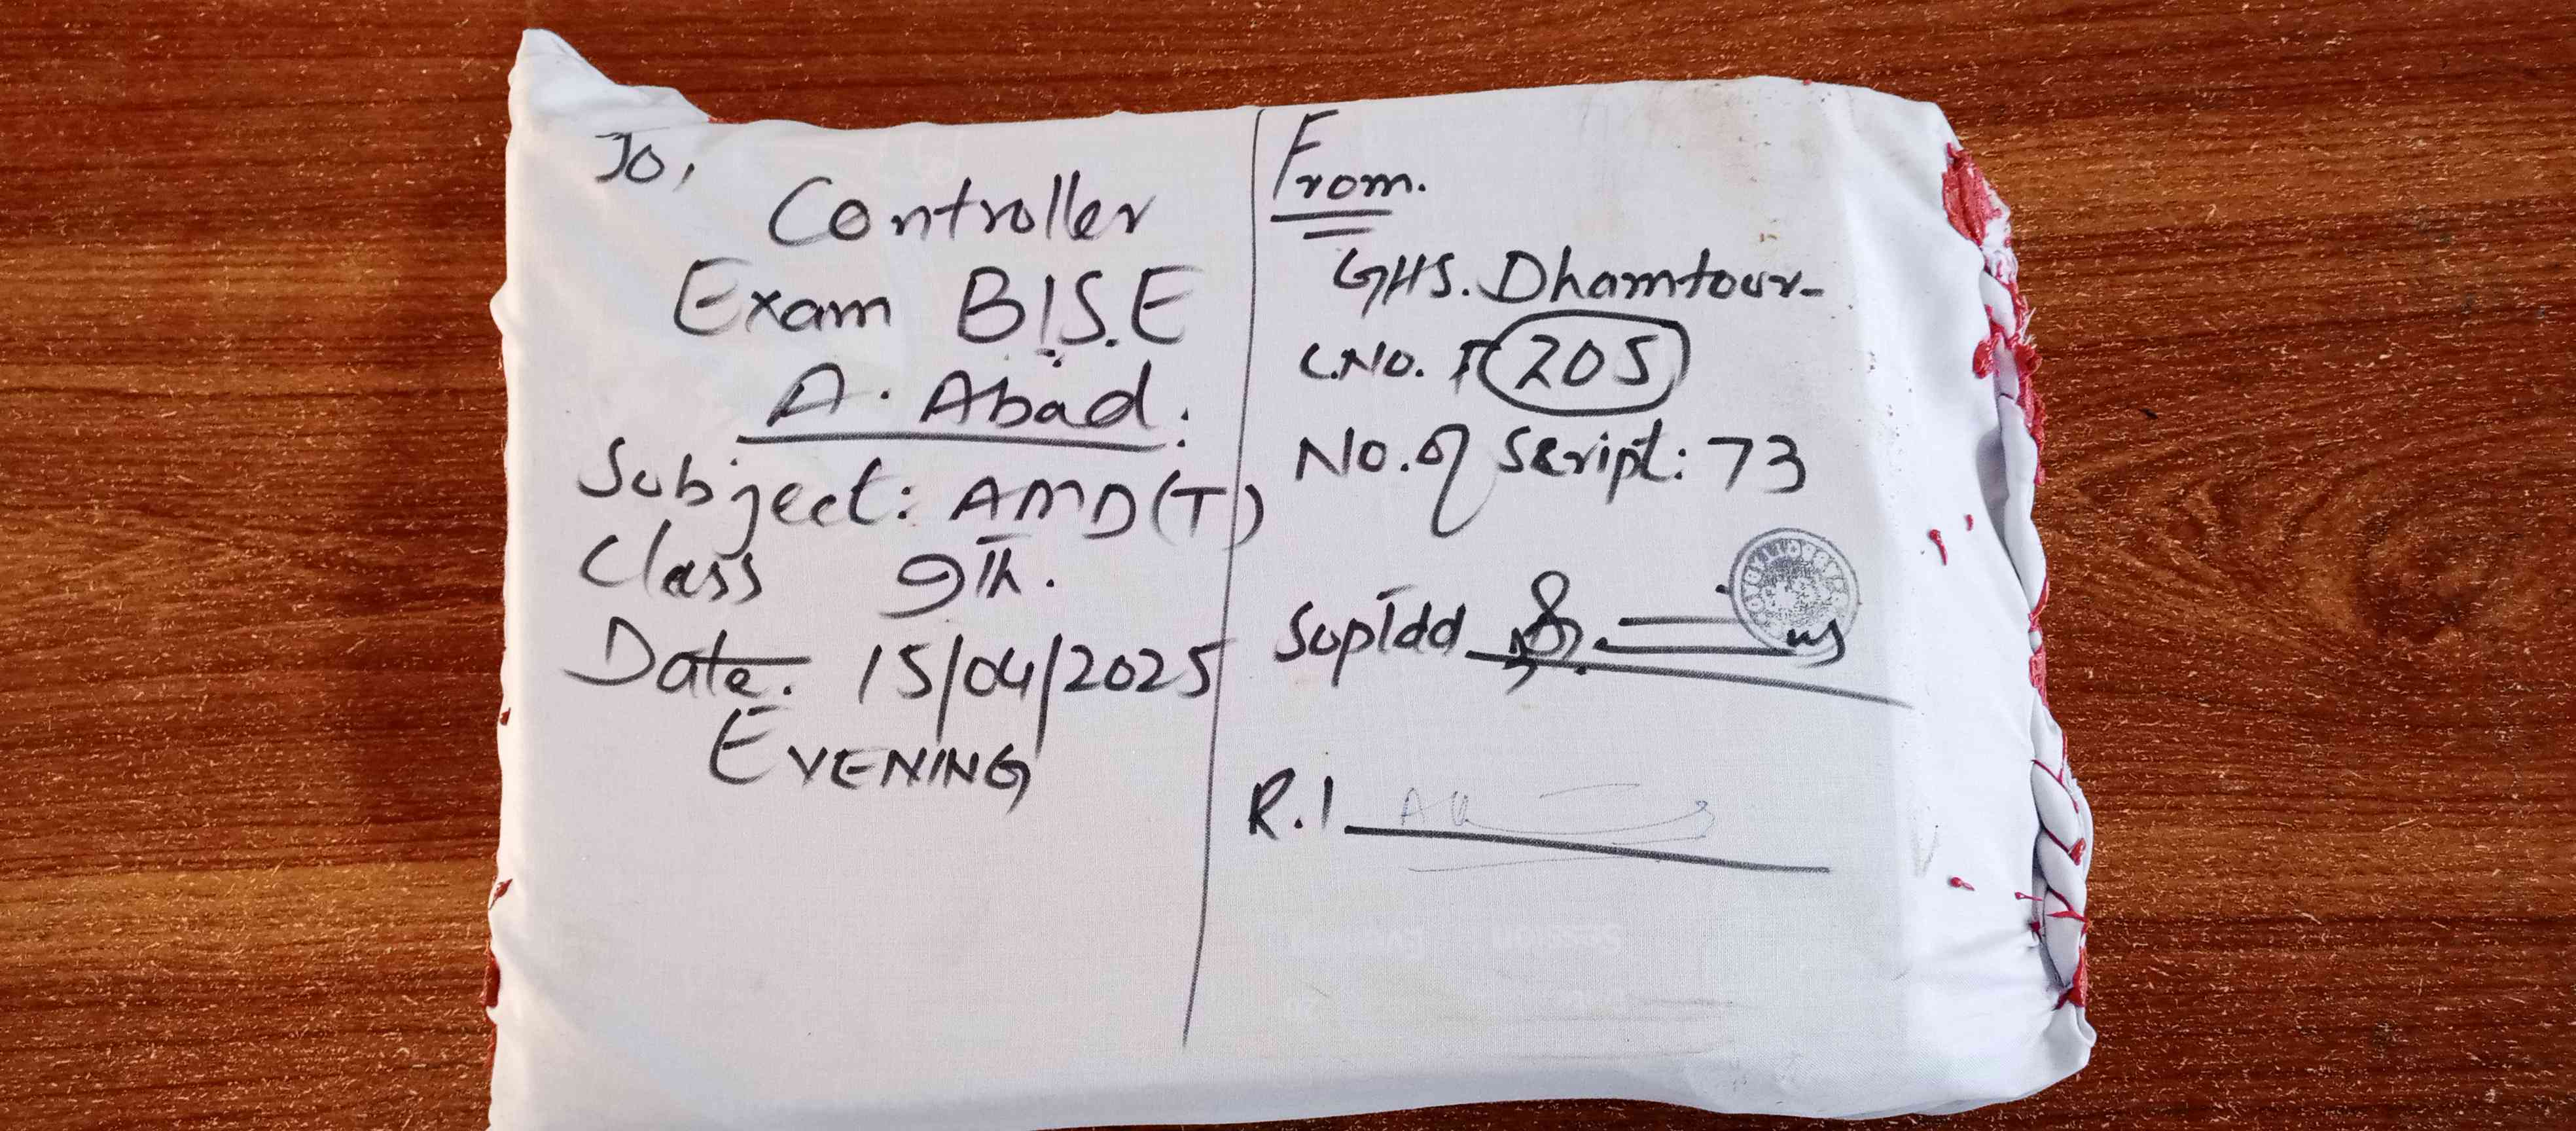 To,
Controller
Exam B.I.S.E
A. Abad.
Subject: AMD(T)
Class 9th.
Date: 15/04/2025
EVENING
From.
GHS. Dhamtour-
C.No. 205
No. of Script: 73
Suptdd
R.I
Session Eve